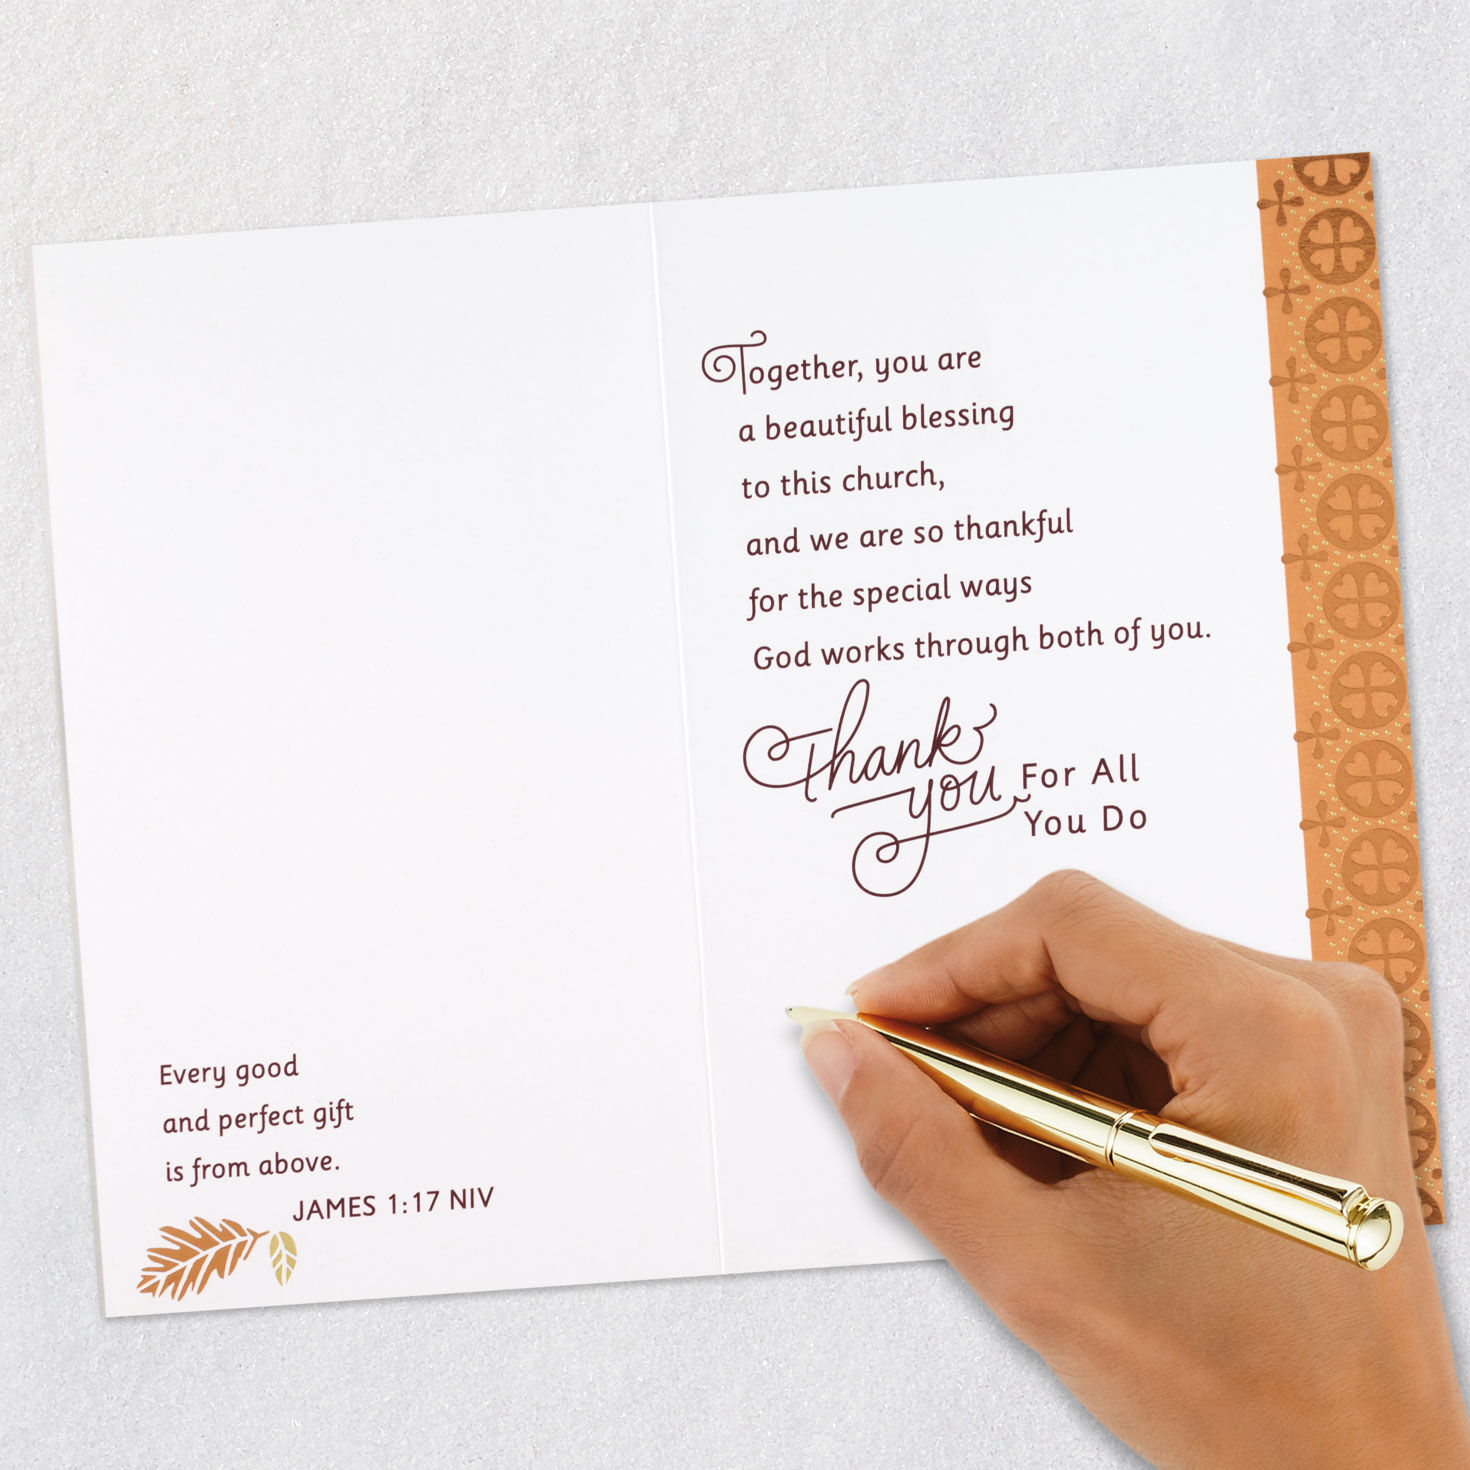 Every good
and perfect gift
is from above.
JAMES 1:17 NIV
Together, you are
a beautiful blessing
to this church,
and we are so thankful
for the special ways
God works through both of you.
Thank
you For All
You Do